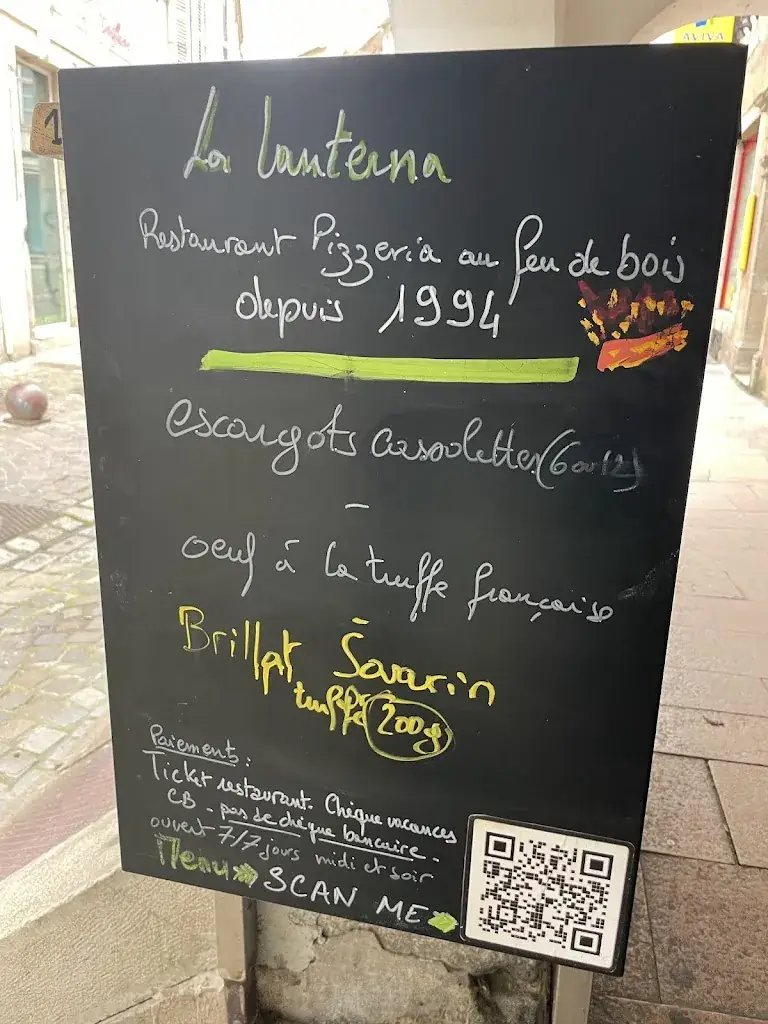 AVIVA
1
La lanterna
Restaurant Pizzeria au feu de bois
depuis 1994
escargots cassolettes (6 ou 12)
-
oeuf à la truffe française
-
Brillat Savarin
truffé 200g
Paiements:
Ticket restaurant. Chèque vacances
CB - pas de chèque bancaire.
ouvert 7/7 jours midi et soir
Menu SCAN ME